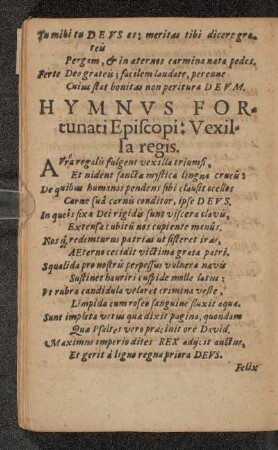 Tu mihi tu DEVS es; meritas tibi dicere gra-
teis
Pergam, & in aternos carmina nata pedes.
Ferte Deo grateis; facilem laudate, perenne
Cuius stat bonitas non peritura DEVM.
HYMNVS FOR-
tunati Episcopi: Vexil-
la regis.
AVra regalis fulgent vexilla triumfi,
Et nident sancta mystica lingna crucis:
De quibus humanos pendens sibi clausit ocellos
Carne suâ carnis conditor, ipse DEVS.
In queis fixa Dei rigidis sunt viscera clavis,
Extensa cubitis nos cupiente manus.
Nos q; redemturus patrias ut sisteret iras,
AEterno cecidit victima grata patri.
Squalida pro nostrâ perpessus vulnera navis
Sustinet hauriri cuspide molle latus:
Vt rubra candidula velaret crimina veste,
Limpida cum roseo sanguine fluxit aqua.
Sunt impleta vetus qua dixit pagina, quondam
Qua Psaltes vero præcinit ore David.
Maximus imperio dites REX adijcit auctus,
Et gerit â ligno regna priora DEVS.
Felix